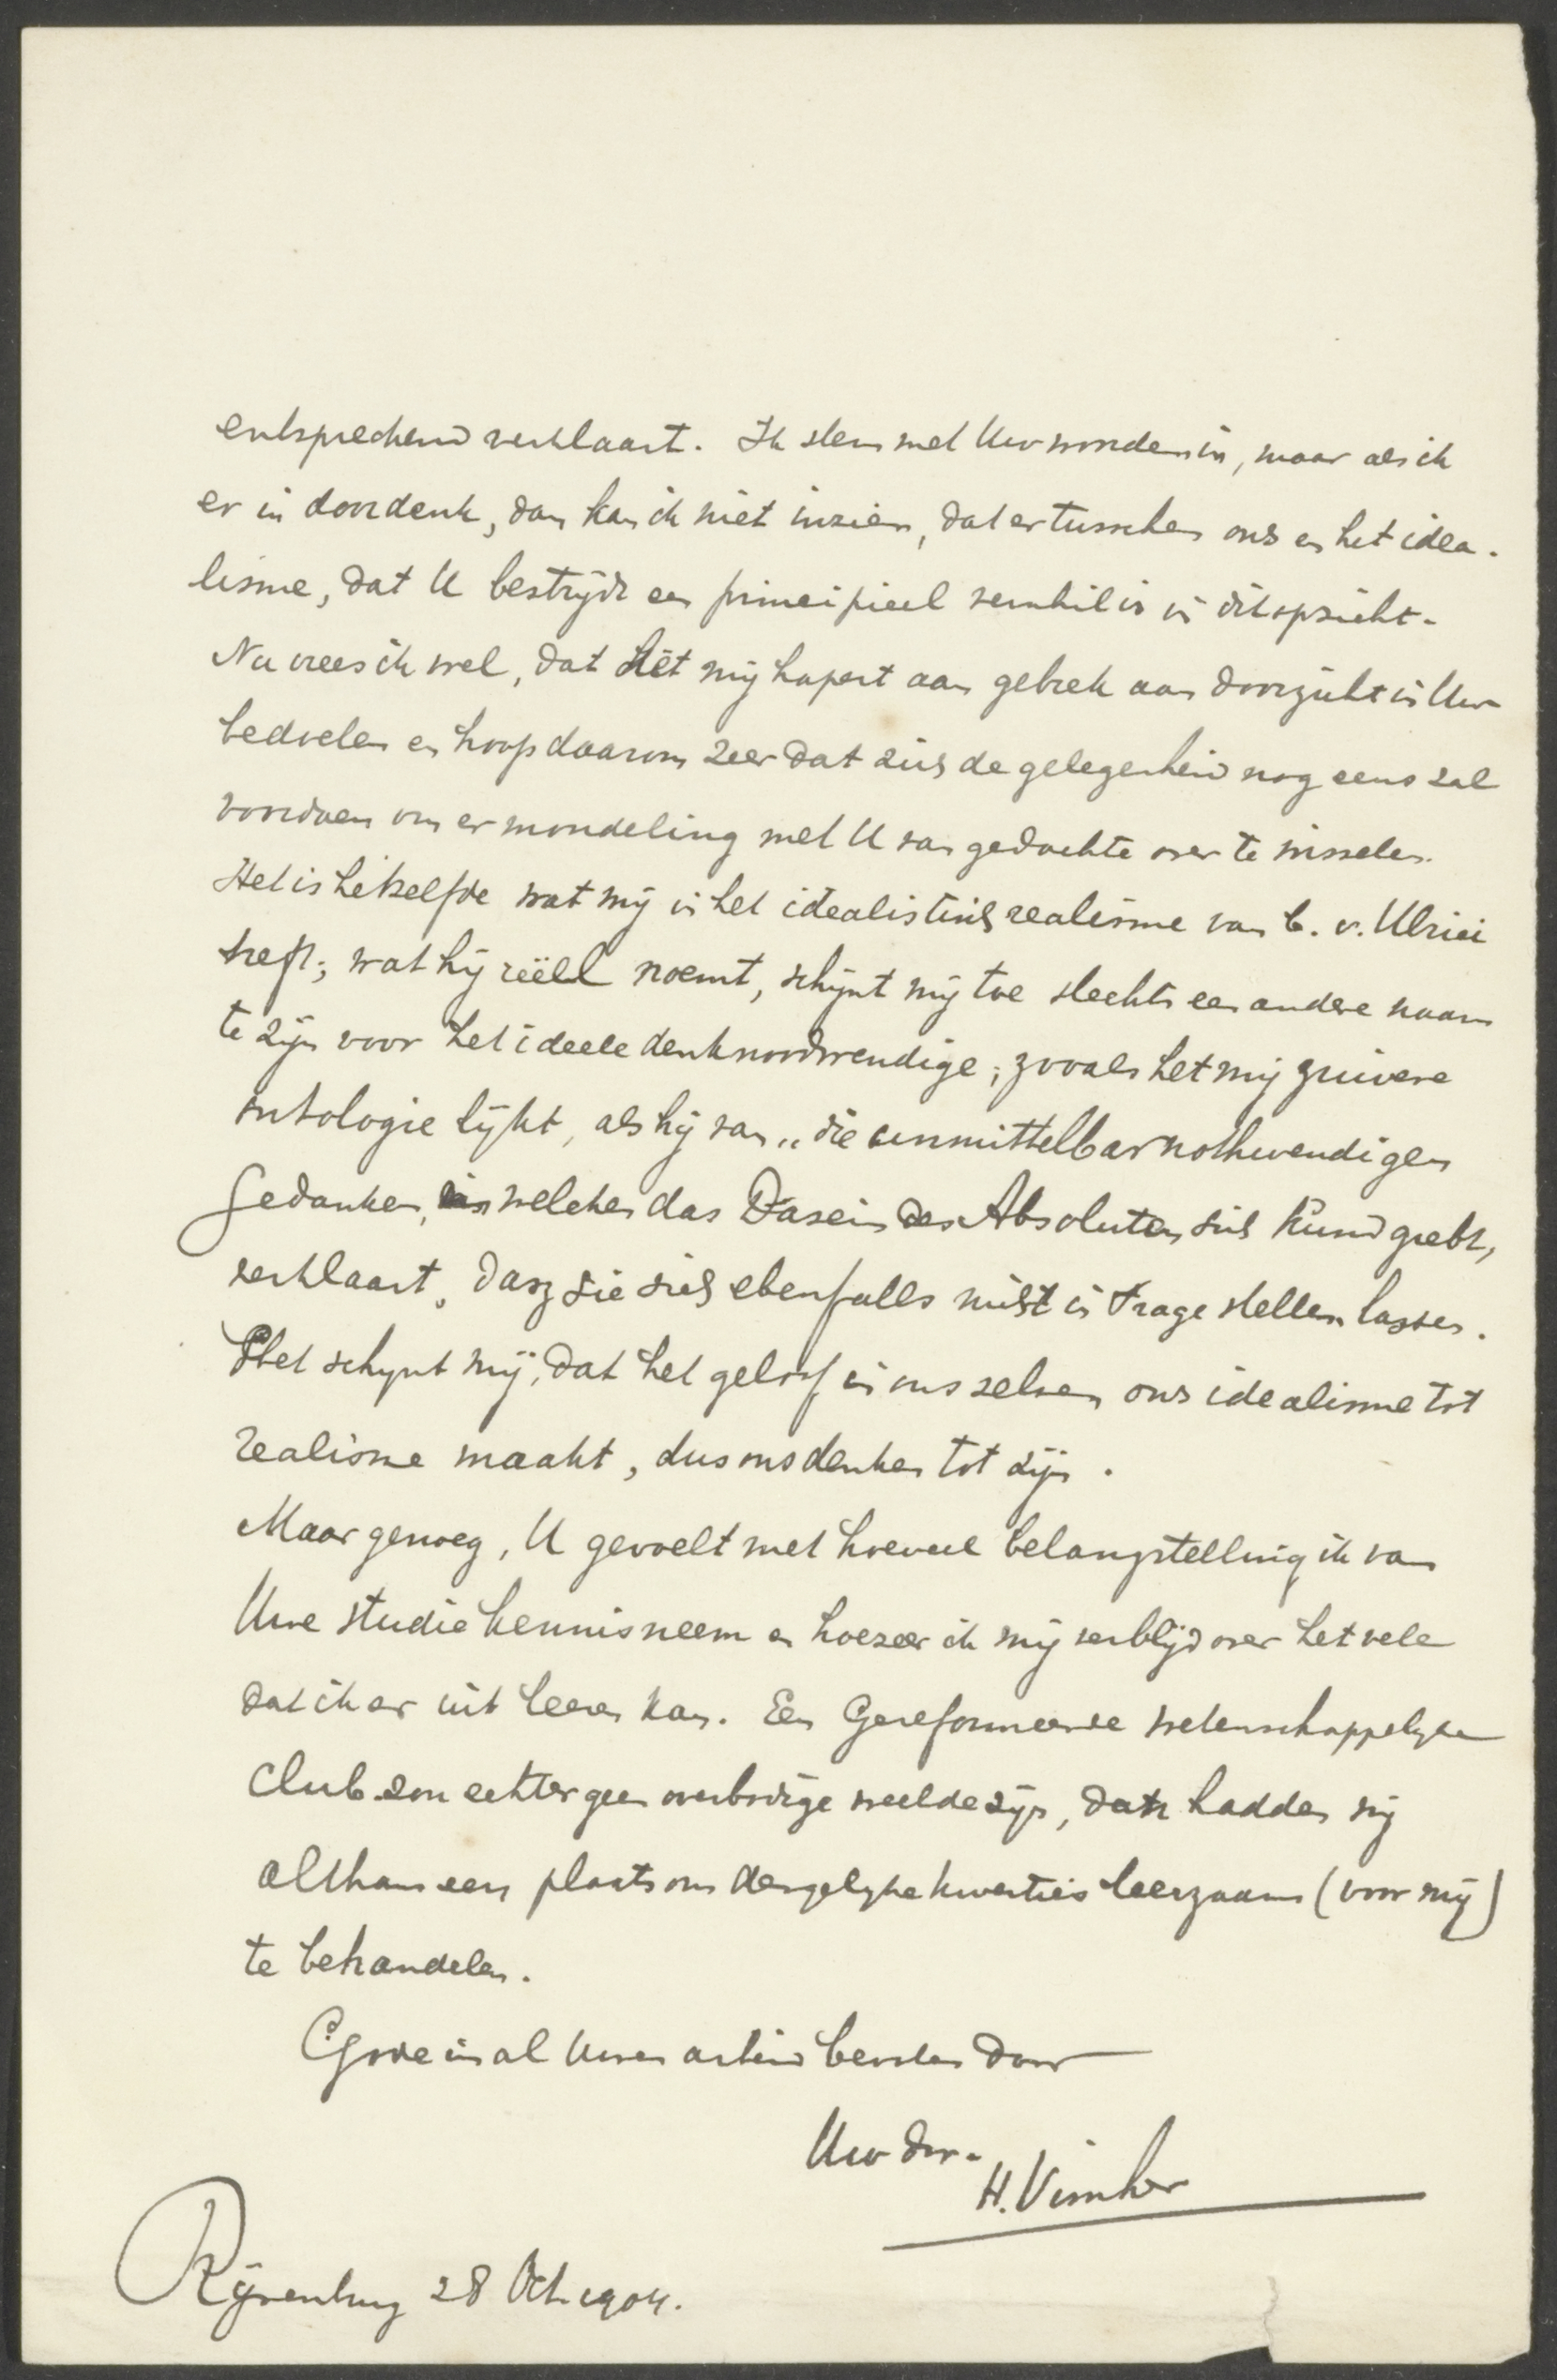 entsprechend verklaart. Ik stem met Uw woorden in, maar als ik
er in doordenk, dan kan ik niet inzien, dat er tusschen ons en het idea-
lisme, dat U bestrijdt een principieel verschil is in dit opzicht.
Nu vrees ik wel, dat het mij hapert aan gebrek aan doorzicht in Uw
bedoelen en hoop daarom zeer dat zich de gelegenheid nog eens zal
voordoen om er mondeling met U van gedachte over te wisselen.
Het is hetzelfde wat mij in het idealistisch realisme van b.v. Ulrici
treft; wat hij reëel noemt, schijnt mij toe slechts een andere naam
te zijn voor het ideele denknoodwendige; zooals het mij zuivere
ontologie lijkt, als hij van "die unmittelbar nothwendigen
Gedanken, in welchen das Dasein des Absoluten sich kund giebt,
verklaart, dasz sie sich ebenfalls nicht in Frage stellen lassen.
Het schijnt mij, dat het geloof in ons zelven ons idealisme tot
realisme maakt, dus ons denken tot zijn.
Maar genoeg, U gevoelt met hoeveel belangstelling ik van
Uwe studie kennis neem en hoezeer ik mij verblijd over het vele
dat ik er uit leeren kan. Een Gereformeerde wetenschappelijke
club zou echter geen overbodige weelde zijn, dan hadden wij
althans een plaats om dergelijke kwesties leerzaam (voor mij)
te behandelen.
Gode in al Uwen arbeid bevolen door
Uw dw.
H. Visscher
Rijnsburg 28 Oct. 1904.